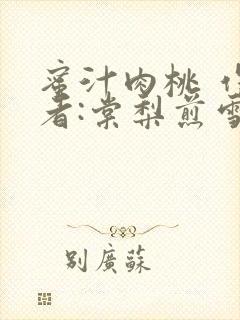 蜜汁肉桃 作
者:棠梨煎雪
別廣蘇